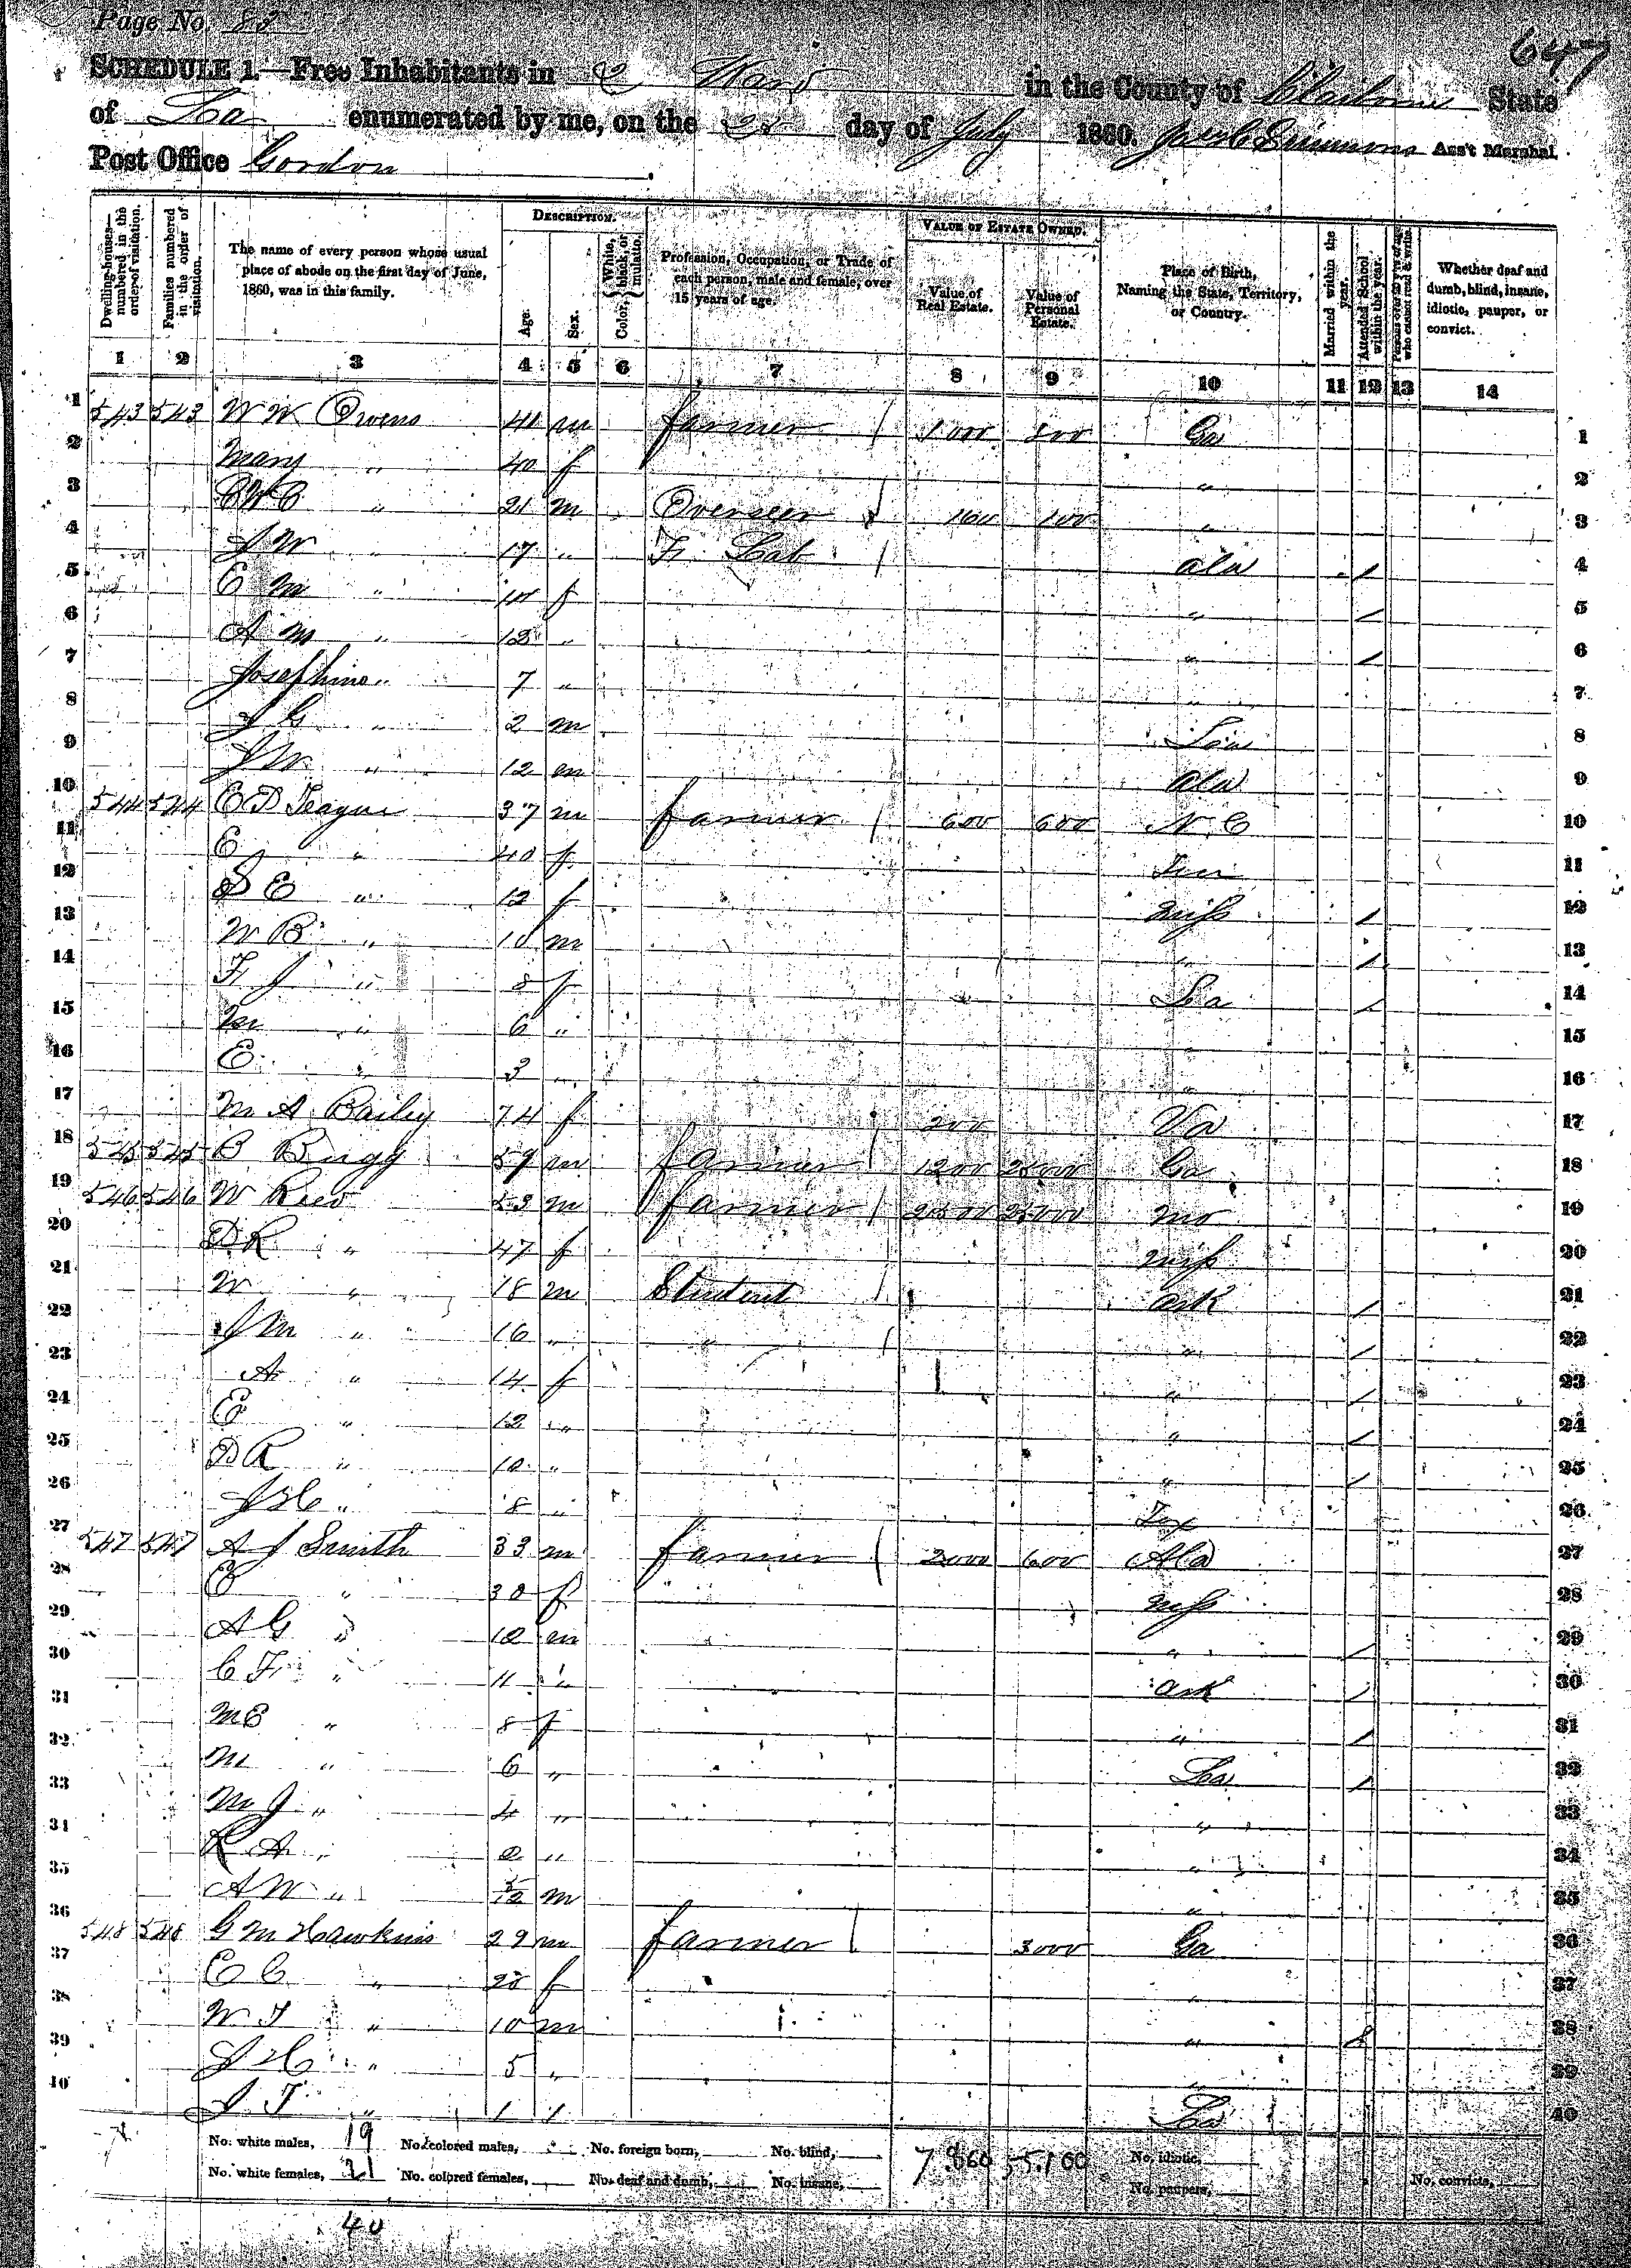 Page No. 82
647
SCHEDULE 1.—Free Inhabitants in Ward in the County of Claiborne State
of La enumerated by me, on the day of July 1860. Ass't Marshal.
Post Office Gordon
Dwelling-houses—numbered in the order of visitation.
Families numbered in the order of visitation.
The name of every person whose usual place of abode on the first day of June, 1860, was in this family.
DESCRIPTION.
Age.
Sex.
Color, White, black, or mulatto.
Profession, Occupation, or Trade of each person, male and female, over 15 years of age.
VALUE OF ESTATE OWNED.
Value of Real Estate.
Value of Personal Estate.
Place of Birth, Naming the State, Territory, or Country.
Married within the year.
Attended School within the year.
Persons over 20 y'rs of age who cannot read & write.
Whether deaf and dumb, blind, insane, idiotic, pauper, or convict.
1 2 3 4 5 6 7 8 9 10 11 12 13 14
1 543 543 W W Owens 41 m farmer 1000 800 Ga 1
2 Mary " 40 f " 2
3 " 21 m Overseer 160 100 " 3
4 J W " 17 " Lab Ala / 4
5 E M " f " / 5
6 A M " 12 " " / 6
7 Josephine " 7 " " 7
8 J G " 2 m Lou 8
9 J W " 12 m Ala 9
10 544 544 Teague 37 m farmer 600 600 N C 10
11 E " 40 f 11
12 S E " 12 f Miss / 12
13 W B " 10 m " / 13
14 F J " 8 f La / 14
15 M " 6 " " 15
16 E " 3 " " 16
17 M A Bailey 74 f 200 Va 17
18 545 545 B 59 m farmer 1200 Ga 18
19 546 546 W 53 m farmer Mo 19
20 D R " 47 f Miss 20
21 W " 18 m Student Ark / 21
22 J M " 16 " " " / 22
23 A " 14 f " / 23
24 E " 12 " " / 24
25 D R " 10 " " / 25
26 " 8 " Tex 26
27 547 547 A J Smith 33 m farmer 2000 600 Ala 27
28 E " 30 f Miss 28
29 A G " 12 m " / 29
30 C F " 11 " Ark / 30
31 M E " 8 f " / 31
32 M " 6 " La / 32
33 M J " 4 " " 33
34 R A " 2 " " 34
35 A W " m " 35
36 548 548 G M Hawkins 29 m farmer 3000 Ga 36
37 E C " 28 f " 37
38 W T " 10 m " / 38
39 J H " 5 " " 39
40 J T " 1 " La 40
No. white males, 19 No. colored males, No. foreign born, No. blind, 7860 55.100 No. idiotic,
No. white females, 21 No. colored females, No. deaf and dumb, No. insane, No. paupers, No. convicts,
40